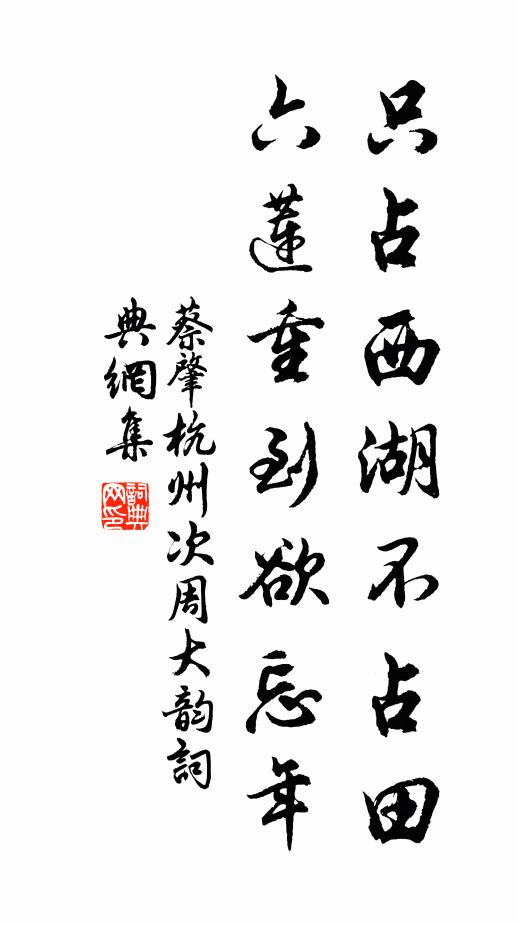 只占西湖不占田
六蓮重到欲忘年
蔡肇杭州次周大韵詞
典網集
詞典网印